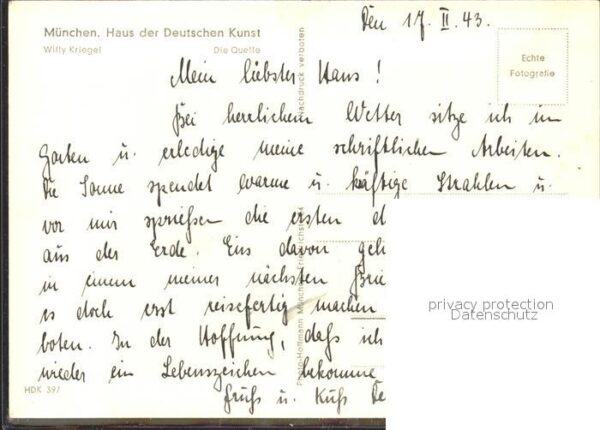 München, Haus der Deutschen Kunst
Willy Kriegel Die Quelle
Den 17. II. 43.
Echte
Fotografie
Mein liebster Hans!
Bei herrlichem Wetter sitze ich im
Garten u. erledige meine schriftlichen Arbeiten.
Die Sonne spendet warme u. kräftige Strahlen u.
vor mir sprießen die ersten
aus der Erde. Eins davon
in einem meiner nächsten
es doch erst reisefertig machen
boten. In der Hoffnung, daß ich
wieder ein Lebenszeichen bekomme
Gruß u. Kuß
HDK 397
Nachdruck verboten
Photo-Hoffmann München
privacy protection
Datenschutz